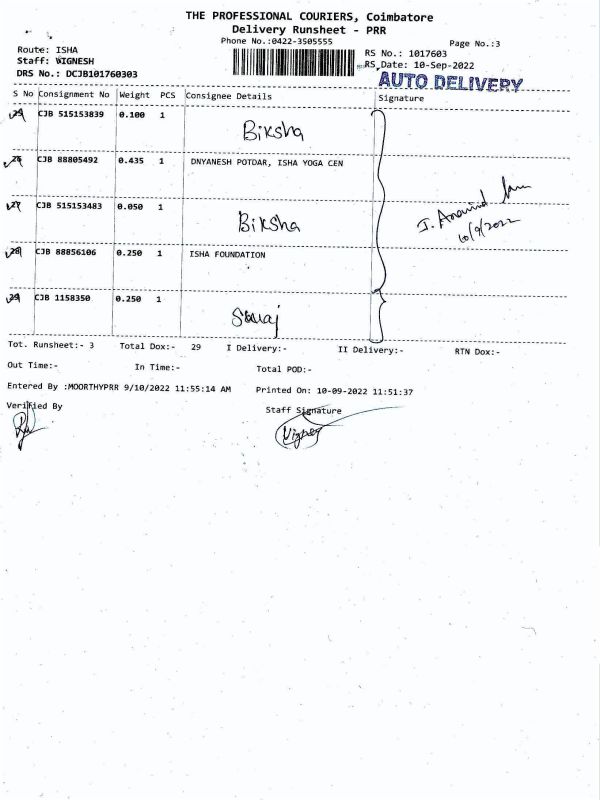 THE PROFESSIONAL COURIERS, Coimbatore
Delivery Runsheet - PRR
Phone No.:0422-3505555
Page No.:3
Route: ISHA
RS No.: 1017603
Staff: VIGNESH
RS Date: 10-Sep-2022
DRS No.: DCJB101760303
AUTO DELIVERY
S No Consignment No Weight PCS Consignee Details Signature
25 CJB 515153839 0.100 1 Biksha
26 CJB 88805492 0.435 1 DNYANESH POTDAR, ISHA YOGA CEN
27 CJB 515153483 0.050 1 Biksha
I. Anamind
10/9/2022
28 CJB 88856106 0.250 1 ISHA FOUNDATION
29 CJB 1158350 0.250 1
Tot. Runsheet:- 3 Total Dox:- 29 I Delivery:- II Delivery:- RTN Dox:-
Out Time:- In Time:- Total POD:-
Entered By :MOORTHYPRR 9/10/2022 11:55:14 AM Printed On: 10-09-2022 11:51:37
Verified By Staff Signature